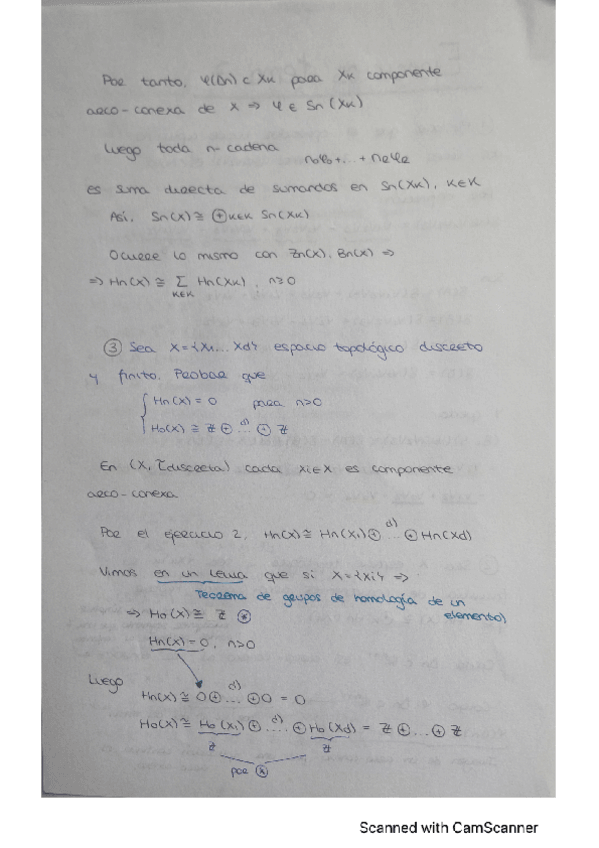 Por tanto, φ(Δn) ⊂ Xk para Xk componente
arco-conexa de X ⇒ φ ∈ Sn(Xk)
Luego toda n-cadena
n0φ0 + ... + nℓφℓ
es suma directa de sumandos en Sn(Xk), k∈K
Así, Sn(X) ≅ ⊕k∈K Sn(Xk)
Ocurre lo mismo con Zn(X), Bn(X) ⇒
⇒ Hn(X) ≅ Σ Hn(Xk), n≥0
k∈K
③ Sea X = {X1,... Xd} espacio topológico discreto
y finito. Probar que
Hn(X) = 0 para n>0
H0(X) ≅ Z ⊕ d) ... ⊕ Z
En (X, τdiscreta) cada xi∈X es componente
arco-conexa
Por el ejercicio 2, Hn(X) ≅ Hn(X1) ⊕ d) ... ⊕ Hn(Xd)
Vimos en un Lema que si X = {xi} ⇒
Teorema de grupos de homología de un
elemento)
⇒ H0(X) ≅ Z ⊛
Hn(X) = 0, n>0
Luego
Hn(X) ≅ 0 ⊕ d) ... ⊕ 0 = 0
H0(X) ≅ H0(X1) ⊕ d) .... ⊕ H0(Xd) = Z ⊕ ... ⊕ Z
Z Z
por ⊛
Scanned with CamScanner